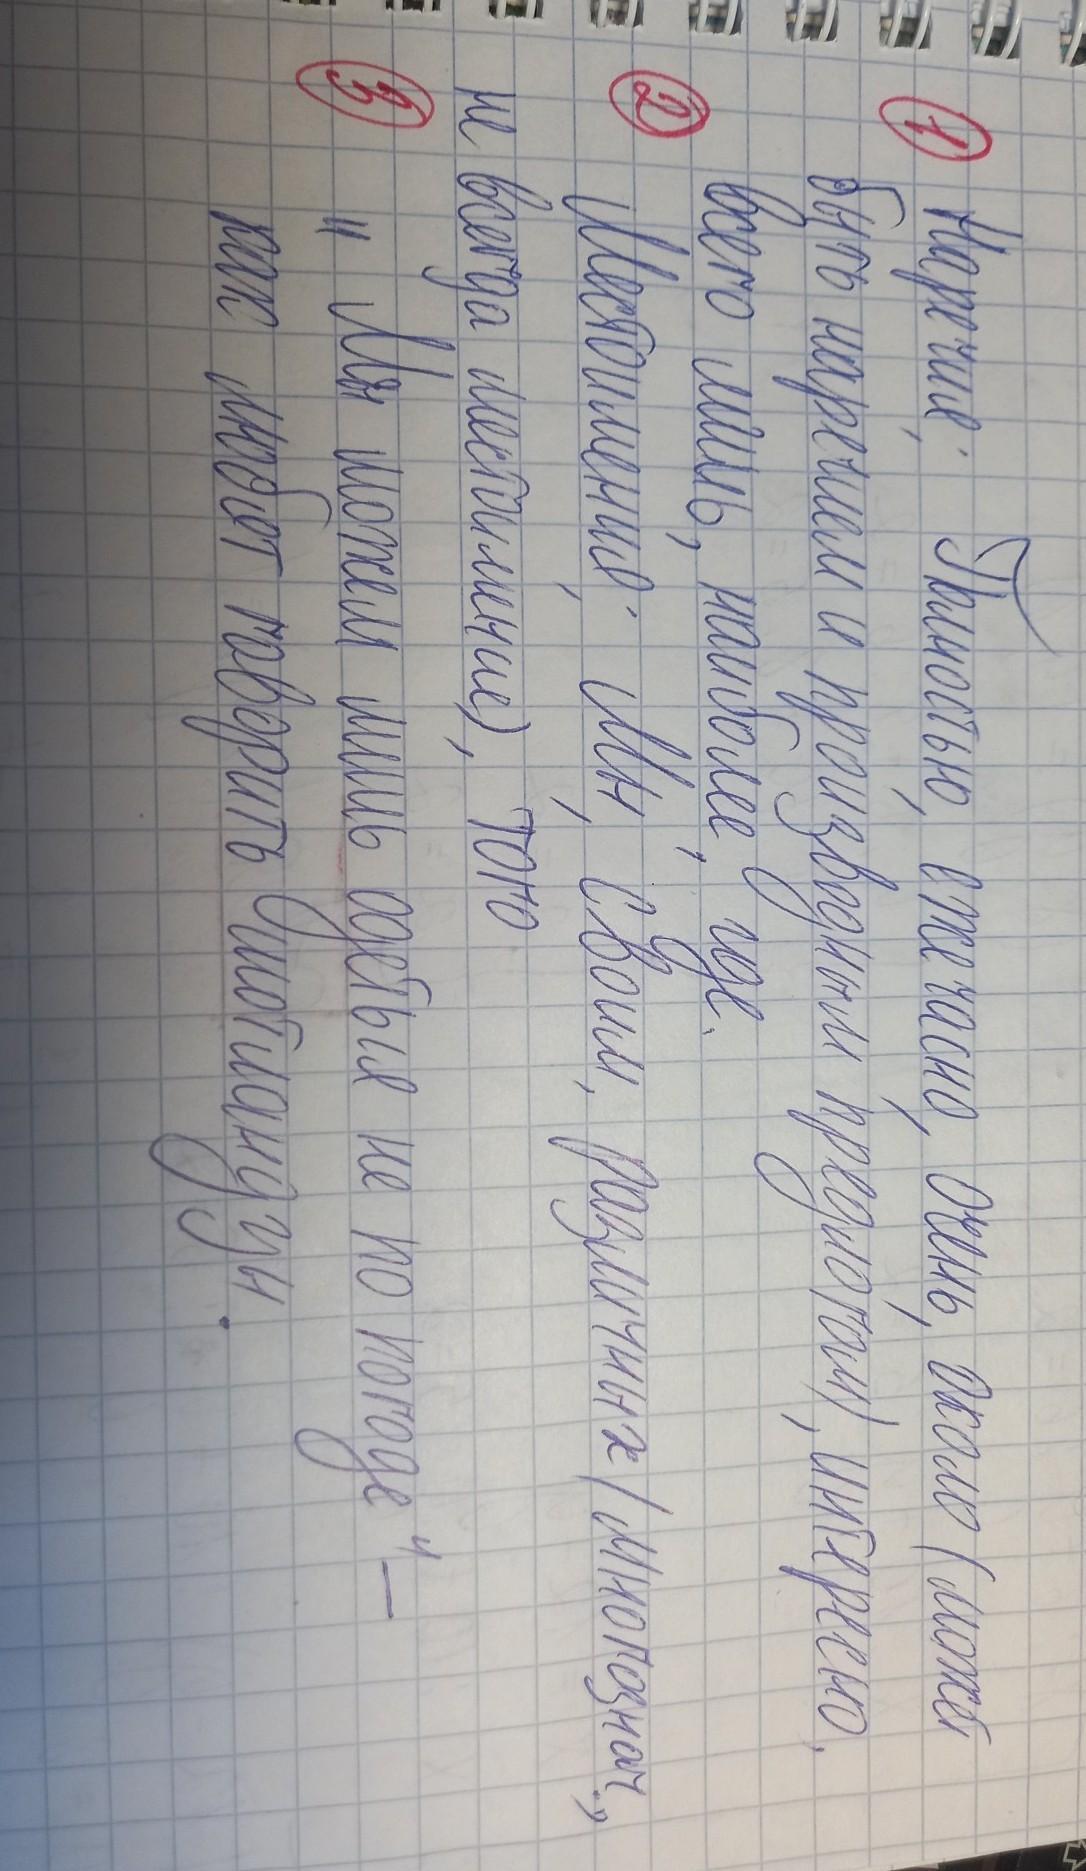 ① Наречие: Полностью, ежечасно, очень, около (может
быть наречием и производным предлогом), интересно,
всего лишь, наиболее, где.
② Местоимение: Мы, своим, различных (многознач.,
не всегда местоимение), того
③ "Мы можем лишь одеться не по погоде" —
как любят говорить синоптики.